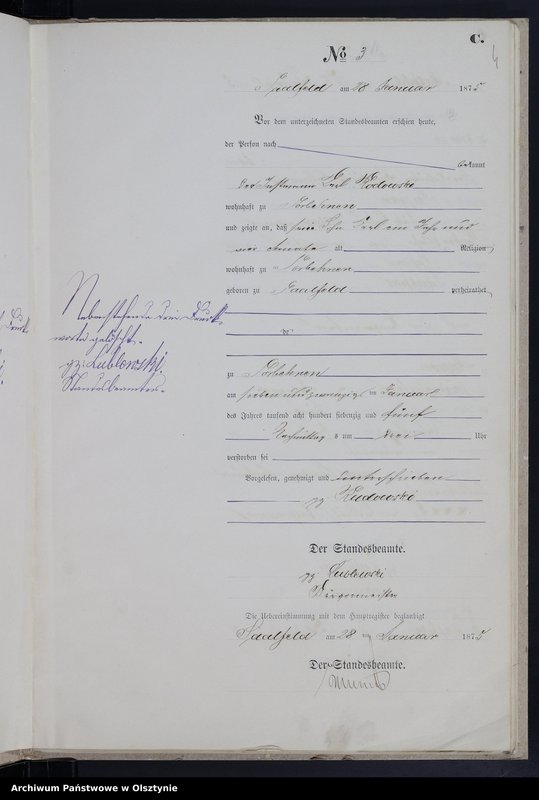 C.
No 3
4
Saalfeld am 28 Januar 1875
Vor dem unterzeichneten Standesbeamten erschien heute,
der Person nach
bekannt
der Instmann Carl
wohnhaft zu
und zeigte an, daß sein Sohn Carl ein Jahr und
Monate alt Religion
wohnhaft zu
geboren zu Saalfeld verheirathet
de
zu
am sieben und zwanzigsten Januar
des Jahres tausend acht hundert siebenzig und fünf
Nachmittag s um drei Uhr
verstorben sei
Vorgelesen, genehmigt und unterschrieben
gz
Nebenstehende drei Druck-
worte gelöscht.
gz: Lublowski.
Standesbeamter.
Der Standesbeamte.
gz Lublowski
Bürgermeister
Die Uebereinstimmung mit dem Hauptregister beglaubigt
Saalfeld am 28 ten Januar 1875
Der Standesbeamte.
Archiwum Państwowe w Olsztynie